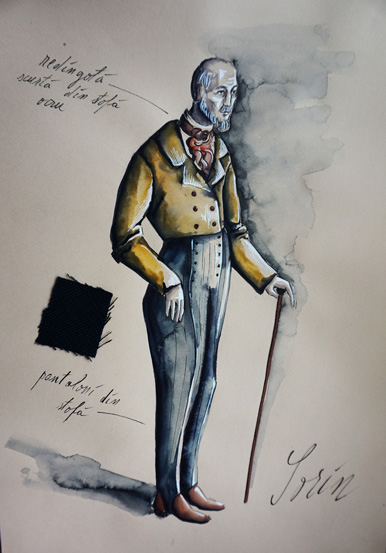 redingotă
scurtă din stofă
ocru
pantaloni din
stofă
Sorin